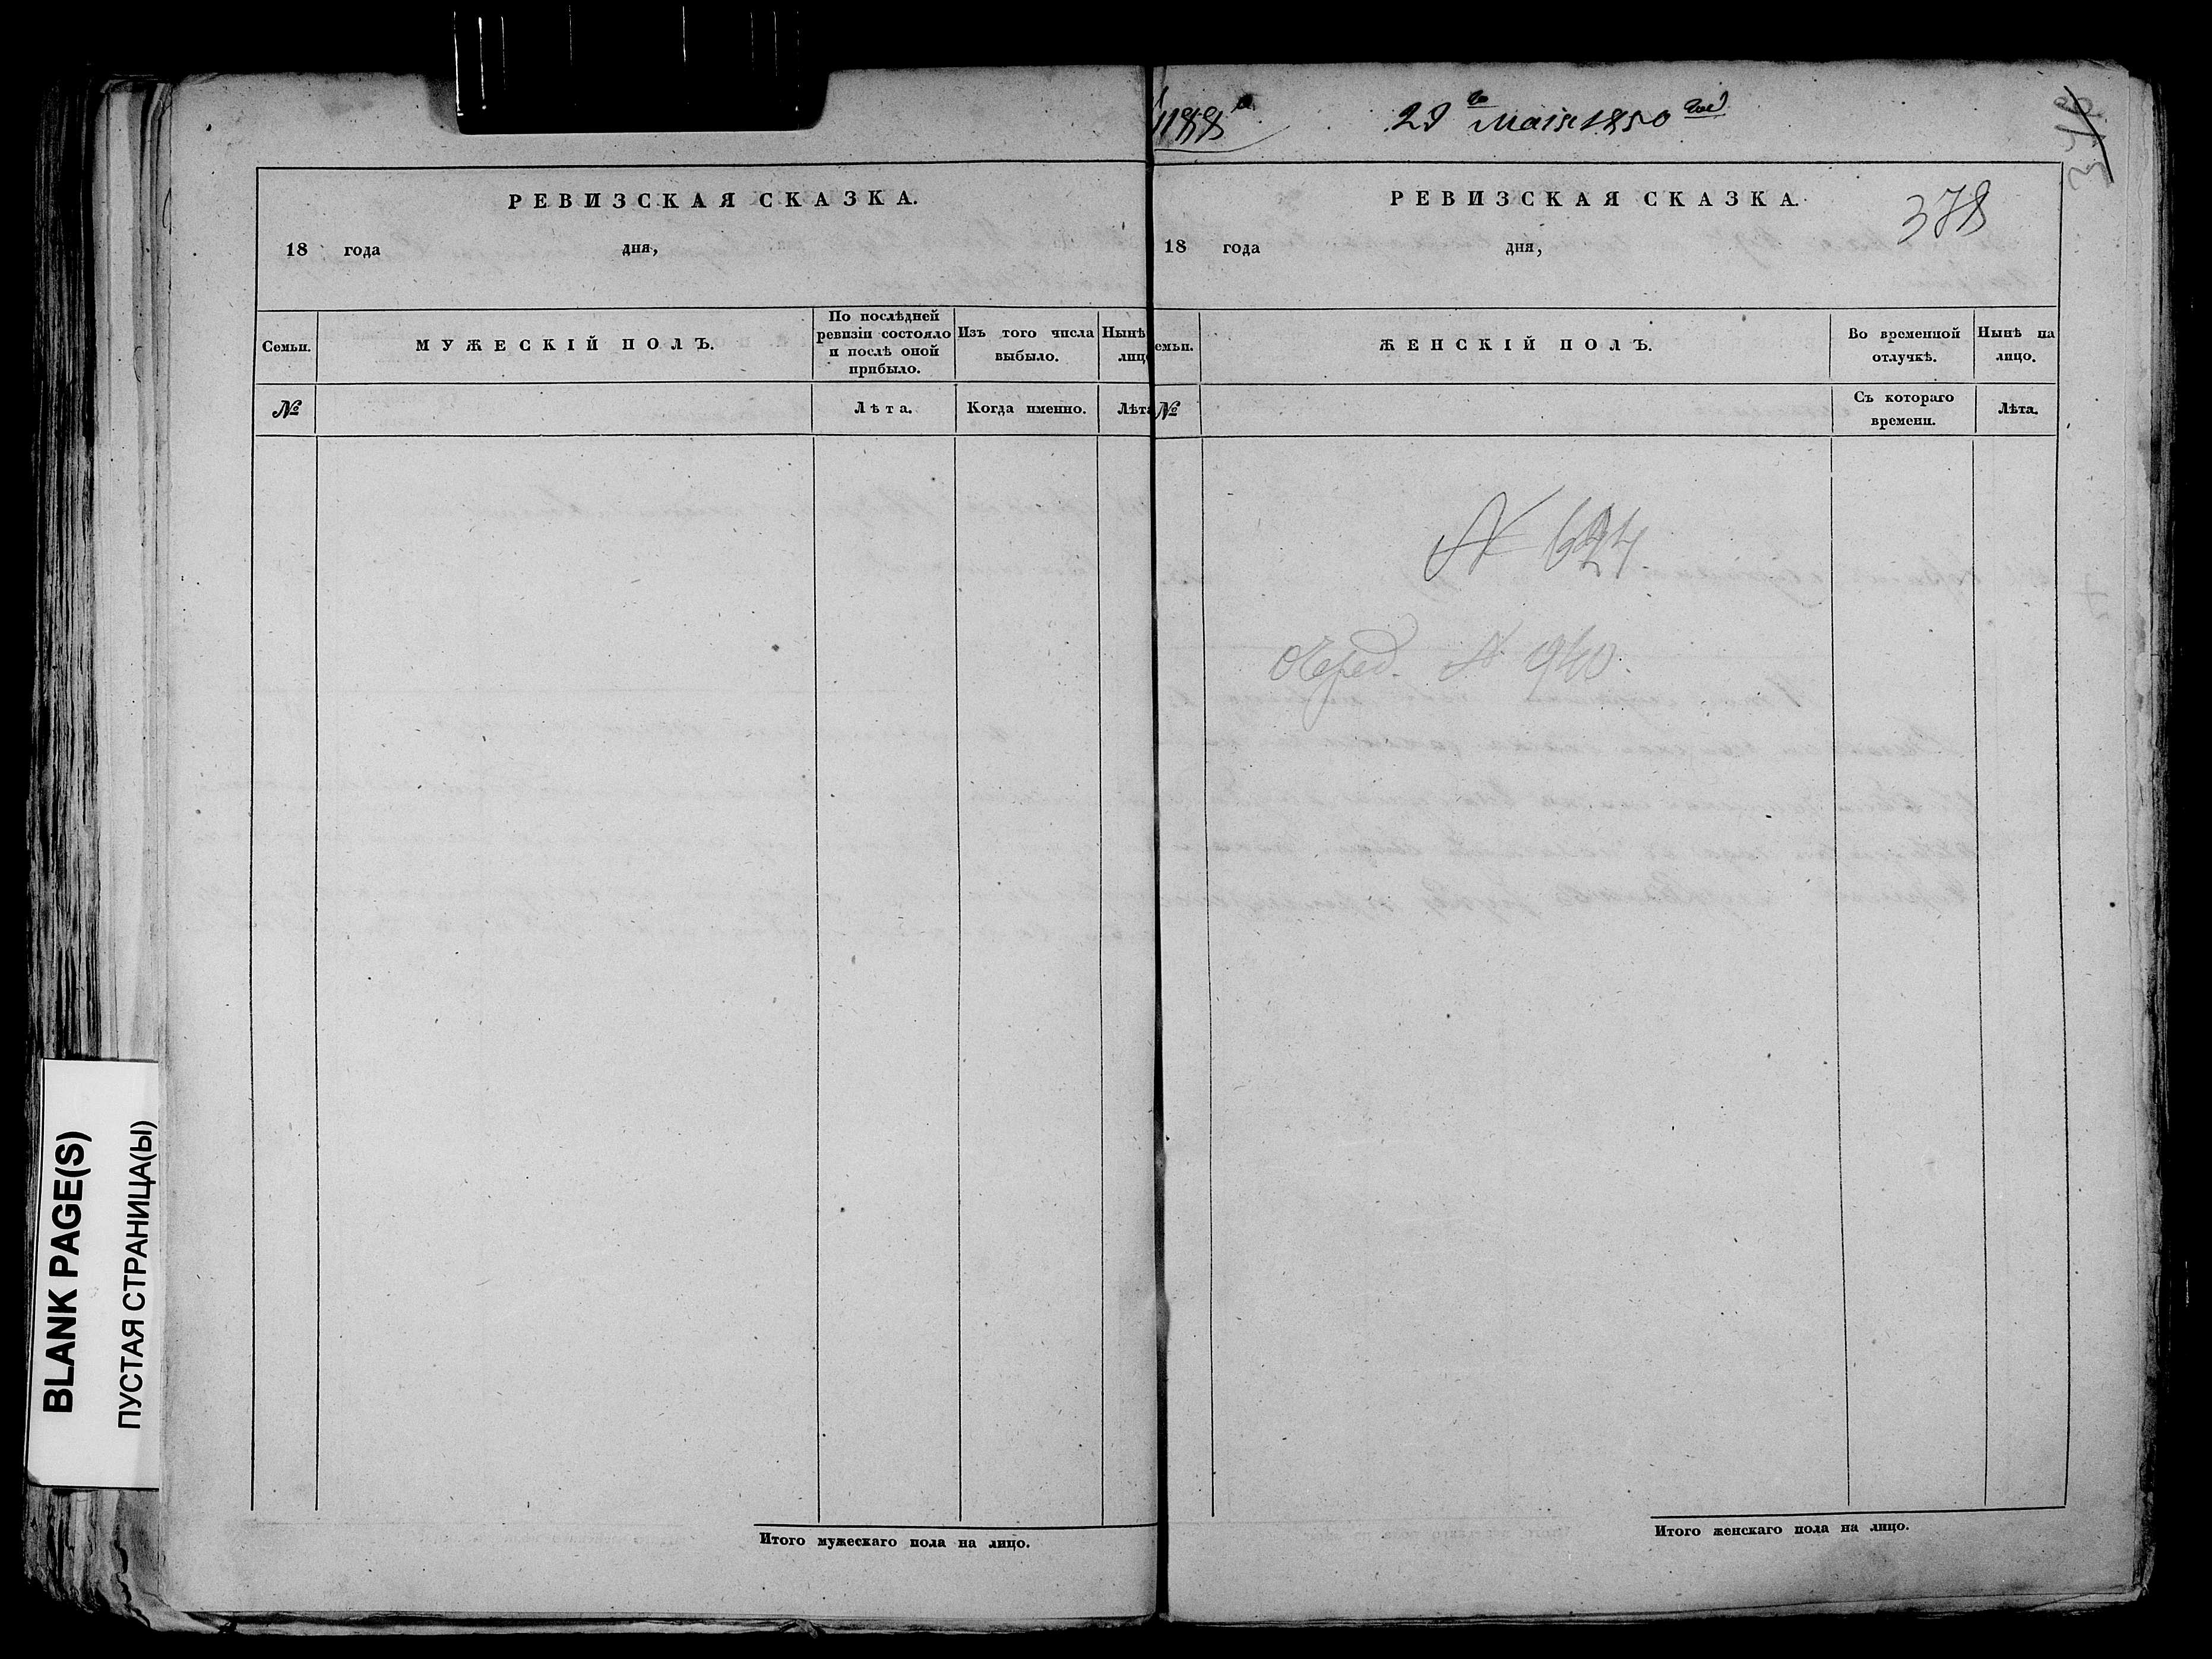 РЕВИЗСКАЯ СКАЗКА.
18 года дня,
Семьи.
МУЖЕСКІЙ ПОЛЪ.
По послѣдней
ревизіи состояло
и послѣ оной
прибыло.
Изъ того числа
выбыло.
Нынѣ
лицо
№
Лѣта.
Когда именно.
Лѣта
Итого мужескаго пола на лицо.
29 Маія 1850
378
РЕВИЗСКАЯ СКАЗКА.
18 года дня,
емьи.
ЖЕНСКІЙ ПОЛЪ.
Во временной
отлучкѣ.
Нынѣ на
лицо.
№
Съ котораго
времени.
Лѣта.
№ 624
Очеред. № 940.
Итого женскаго пола на лицо.
BLANK PAGE(S)
ПУСТАЯ СТРАНИЦА(Ы)